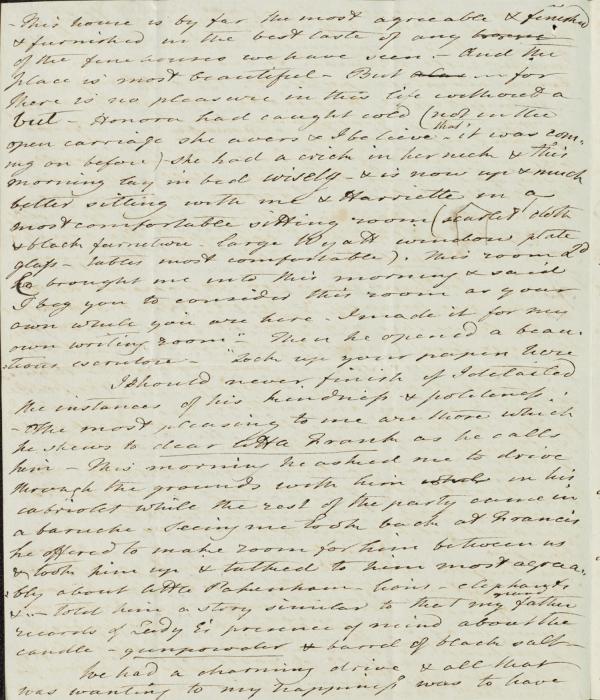 - This house is by far the most agreeable & finished
& furnished in the best taste of any house
of the fine houses we have seen - And the
place is most beautiful - But for
there is no pleasure in this life without a
but - Honora had caught cold (not in the
open carriage she avers & I believe - that it was com-
ing on before) she had a crick in her neck & this
morning lay in bed wisely - & is now up & much
better sitting with me & Harriette in a
most comfortable sitting room (scarlet cloth
& black furniture - large Wyatt window plate
glass - tables most comfortable). This room Ld
C brought me into this morning & said
I beg you to consider this room as your
own while you are here - I made it for my
own writing room" - Then he opened a beau-
tious escritoire - "Lock up your papers here
I should never finish if I detailed
the instances of his kindness & politeness.
- The most pleasing to me are those which
he shews to dear little Frank as he calls
him - This morning he asked me to drive
through the grounds with him in his
cabriolet while the rest of the party came in
a barouche. Seeing me look back at Francis
he offered to make room for him between us
& took him up & talked to him most agreea-
bly about little Pakenham - lions - elephants
&c - told him a story similar to that my father
records of Lady E's presence of mind about the
candle - gunpowder & barrel of black salt -
We had a charming drive & all that
was wanting to my happiness was to have